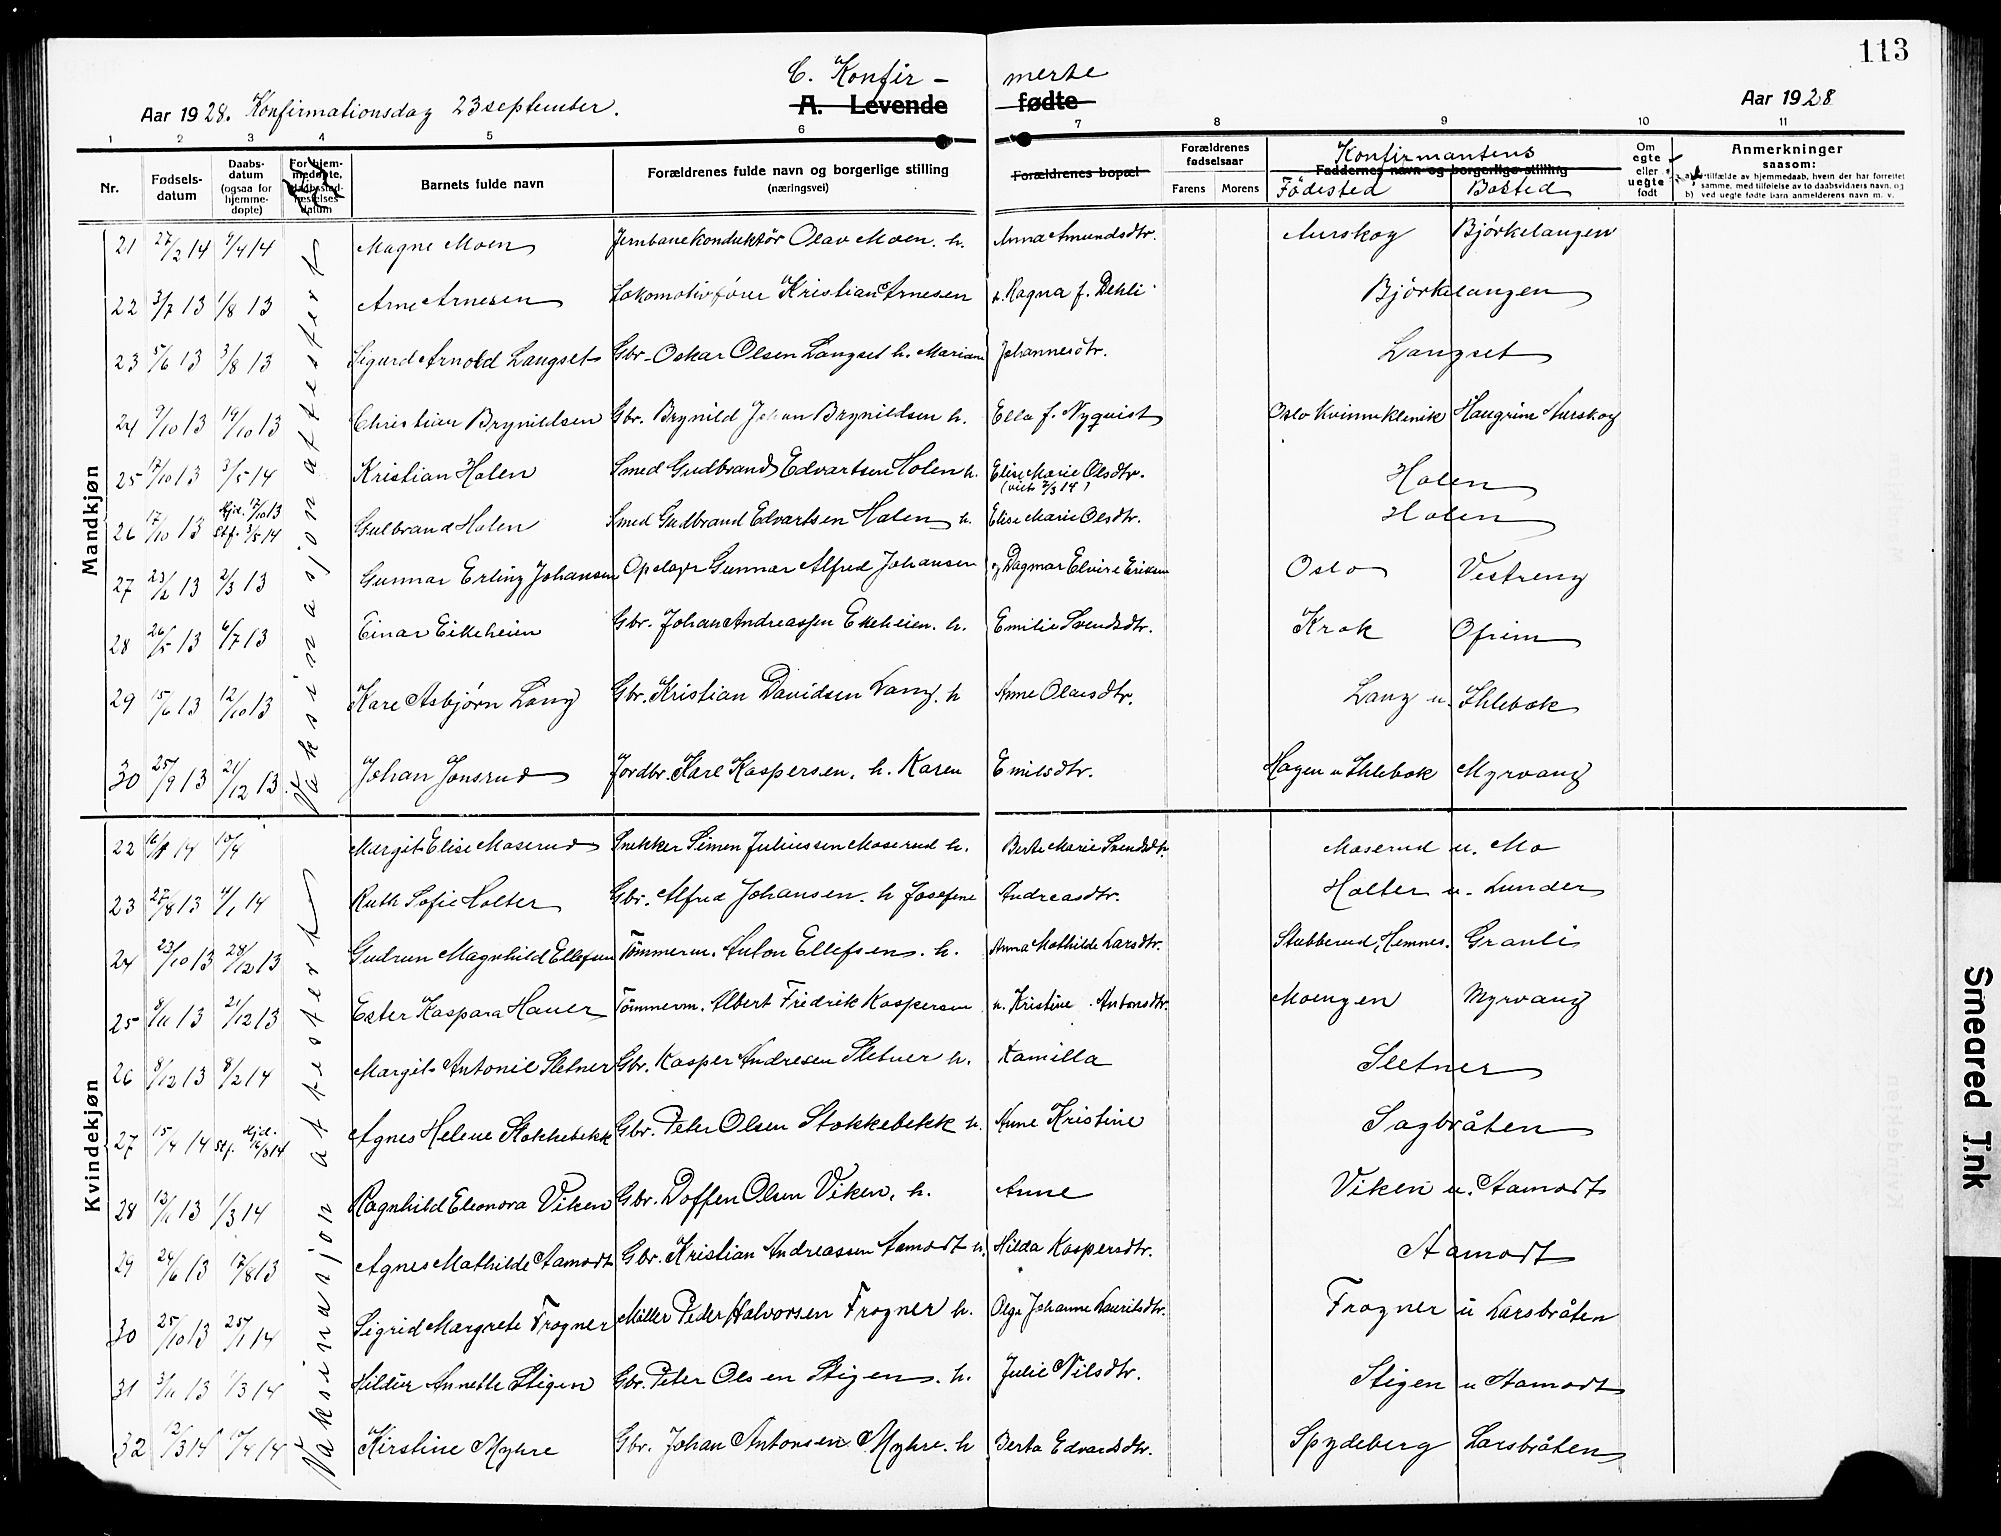 113
C. Konfirmerte
Aar 1928. Konfirmationsdag 23 september.
A. Levende fødte
Aar 1928
1 2 3 4 5 6 7 8 9 10 11
Nr.
Fødselsdatum
Daabsdatum (ogsaa for hjemmedøpte)
Barnets fulde navn
Forældrenes fulde navn og borgerlige stilling (næringsvei)
Forældrenes bopæl
Forældrenes fødselsaar
Farens Morens
Konfirmantens
Faddernes navn og borgerlige stilling
Födested Bosted
Om egte eller uegte født
Anmerkninger saasom:
a) tilfælde av hjemmedaab, hvem der har forrettet samme, med tilføielse av to daabsvidners navn, og
b) ved uegte fødte barn anmelderens navn m. v.
Mandkjøn
Vaksinasjon attestert
21 27/2 14 9/4 14 Magne Moen Jernbanekonduktör Olav Moen. h. Anna Amundsdtr. Aurskog Bjørkelangen
22 3/7 13 1/8 13 Arne Arnesen Lokomotivförer Kristian Arnesen h. Ragna f. Dehli Bjørkelangen
23 5/6 13 3/8 13 Sigurd Arnold Langset Gbr. Oskar Olsen Langset h. Mariane Johannesdtr. Langset
24 9/10 13 19/10 13 Christian Brynildsen Gbr. Brynild Johan Brynildsen h. Ella f. Nyquist Oslo Kvinneklinik Haugrim Aurskog
25 17/10 13 3/5 14 Kristian Holen Smed Gudbrand Edvartsen Holen h. Elise Marie Olsdtr. Holen
26 17/10 13 Hjd. 17/10 13 Stf. 3/5 14 Gulbrand Holen Smed Gudbrand Edvartsen Holen h. Elise Marie Olsdtr. Holen
27 23/2 13 2/3 13 Gunnar Erling Johansen Opslager Gunnar Alfred Johansen og Dagmar Elvire Eriksen Oslo Vestreng
28 26/5 13 6/7 13 Einar Eikeheien Gbr. Johan Andreassen Ekeheien. h. Emilie Svendsdtr. Krok Ofrim
29 15/6 13 12/10 13 Kare Asbjørn Lang Gbr. Kristian Davidsen Lang. h Anne Olausdtr. Lang u. Ihlebæk
30 25/9 13 21/12 13 Johan Jonsrud Jordbr. Karl Kaspersen. h. Karen Emilsdtr. Hagen u Ihlebæk Myrvang
Kvindekjøn
Vaksinasjon attestert
22 14 10/4 Margit Elise Moserud Snekker Simen Juliussen Moserud h. Berte Marie Svendsdtr. Moserud u. Mo
23 27/8 13 4/1 14 Ruth Sofie Holter Gbr. Alfred Johansen. h Josefine Andreasdtr. Holter u. Lunder
24 23/10 13 28/12 13 Gudrun Magnhild Ellefsen Tömmerm. Anton Ellefsen. h. Anna Mathilde Larsdtr. Stubberud, Hemnes. Granli
25 8/11 13 21/12 13 Ester Kaspara Hauer Tömmerm. Albert Fredrik Kaspersen h. Kristine Antonsdtr. Moengen Myrvang
26 8/12 13 8/2 14 Margit Antonie Sletner Gbr. Kasper Andresen Sletner h. Kamilla Sletner
27 15/4 14 Hjd. Stf. Agnes Helene Stokkebekk Gbr. Peter Olsen Stokkebekk h. Anne Kristine Sagbråten
28 13/11 13 1/3 14 Ragnhild Eleonora Viken Gbr. Doffen Olsen Viken, h. Anne Viken u. Aamodt
29 24/6 13 17/8 13 Agnes Mathilde Aamodt Gbr. Kristian Andreassen Aamodt h. Hilda Kaspersdtr. Aamodt
30 25/10 13 25/1 14 Sigrid Margrete Frogner Møller Peder Halvorsen Frogner h. Olga Johanne Lauritsdtr. Frogner u Larsbråten
31 3/11 13 1/3 14 Hildur Annette Stigen Gbr. Peter Olsen Stigen. h. Julie Nilsdtr. Stigen u Aamodt
32 12/3 14 14 Kirstine Myhre Gbr. Johan Antonsen Myhre. h Berta Edvardsdtr. Spydeberg Larsbråten
Smeared Ink